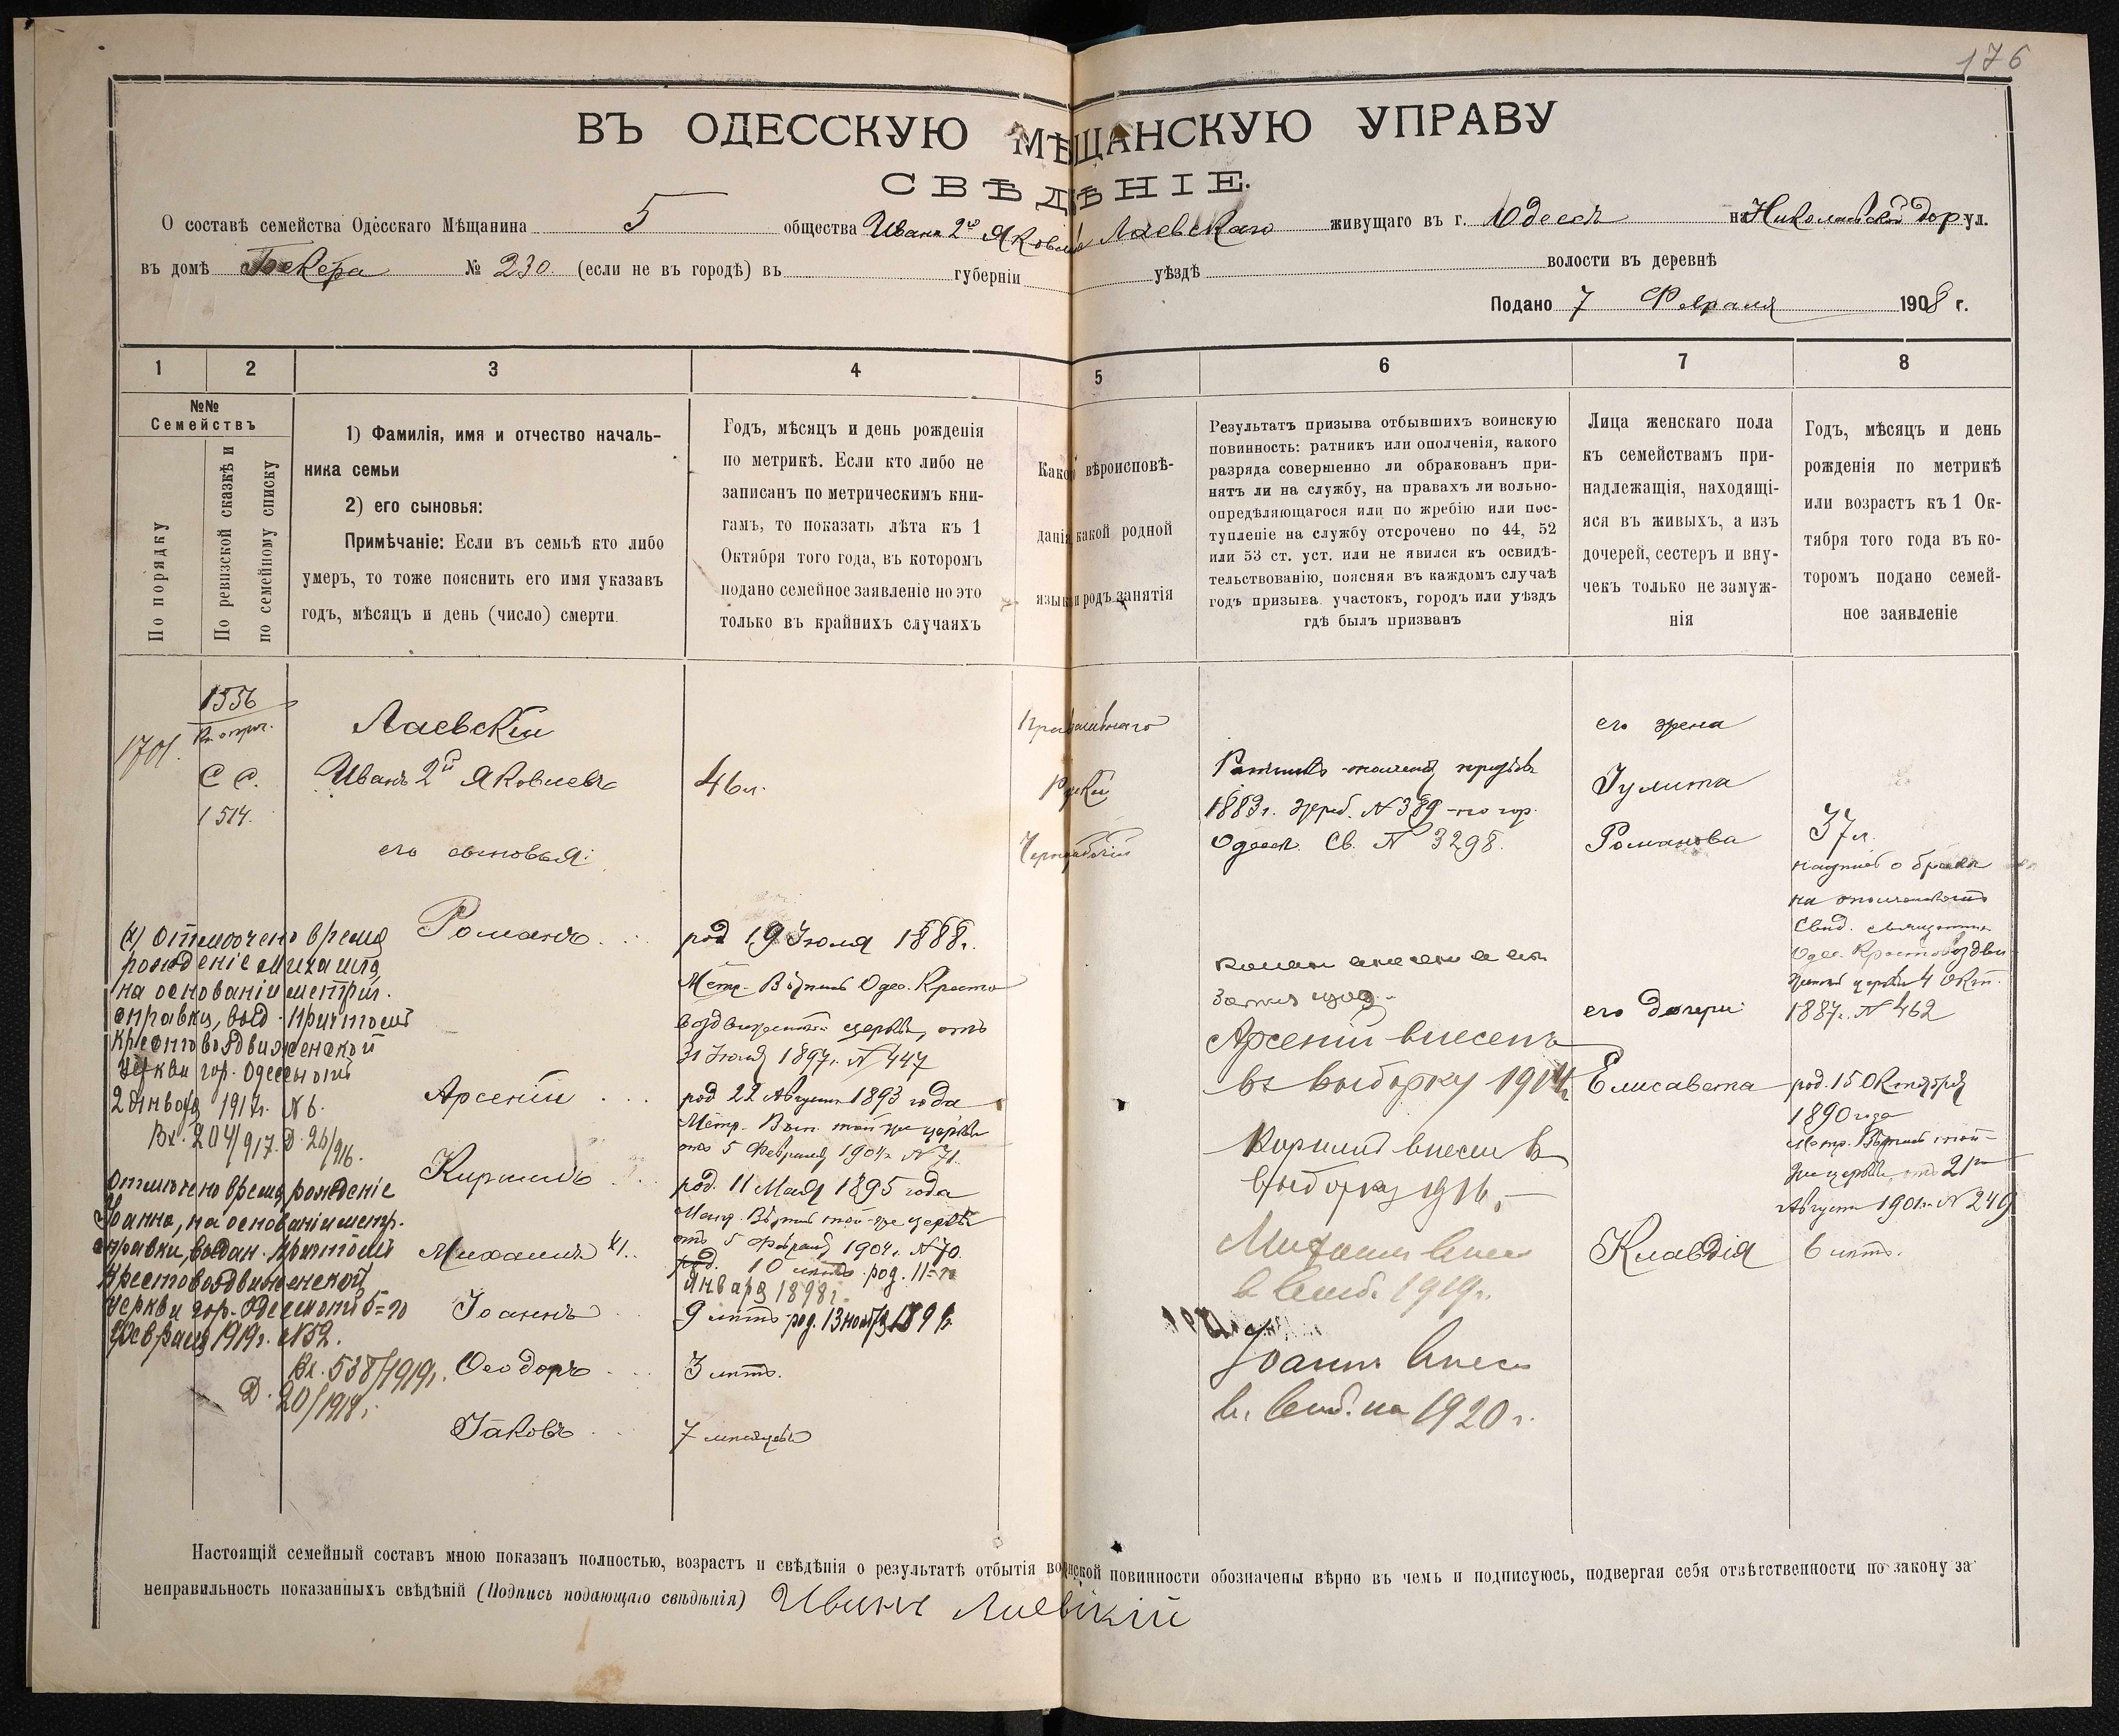 176
ВЪ ОДЕССКУЮ МѢЩАНСКУЮ УПРАВУ
СВѢДѢНІЕ.
О составѣ семейства Одесскаго Мѣщанина 5 общества Ивана 2го Яковлева Лаевскаго живущаго въ г. Одессѣ на Николаевской дор ул.
въ домѣ Бекера № 230. (если не въ городѣ) въ губерніи уѣздѣ волости въ деревнѣ
Подано 7 Февраля 1908 г.
1 2 3 4 5 6 7 8
№№
Семействъ
По порядку
По ревизской сказкѣ и
по семейному списку
1) Фамилія, имя и отчество началь-
ника семьи
2) его сыновья:
Примѣчаніе: Если въ семьѣ кто либо
умеръ, то тоже пояснить его имя указавъ
годъ, мѣсяцъ и день (число) смерти
Годъ, мѣсяцъ и день рожденія
по метрикѣ. Если кто либо не
записанъ по метрическимъ кни-
гамъ, то показать лѣта къ 1
Октября того года, въ которомъ
подано семейное заявленіе но это
только въ крайнихъ случаяхъ
Какой вѣроисповѣ-
данія какой родной
языкъ и родъ занятія
Результатъ призыва отбывшихъ воинскую
повинность: ратникъ или ополченія, какого
разряда совершенно ли обракованъ при-
нятъ ли на службу, на правахъ ли вольно-
опредѣляющагося или по жребію или пос-
тупленіе на службу отсрочено по 44, 52
или 53 ст. уст. или не явился къ освидѣ-
тельствованію, поясняя въ каждомъ случаѣ
годъ призыва участокъ, городъ или уѣздъ
гдѣ былъ призванъ
Лица женскаго пола
къ семействамъ при-
надлежащія, находящі-
яся въ живыхъ, а изъ
дочерей, сестеръ и вну-
чекъ только не замуж-
нія
Годъ, мѣсяцъ и день
рожденія по метрикѣ
или возрастъ къ 1 Ок-
тября того года въ ко-
торомъ подано семей-
ное заявленіе
1701.
1556
С С.
1514.
Лаевскій
Иванъ 2й Яковлевъ
46 л.
его сыновья:
Православнаго
Русскій
Чернорабочій
Ратникъ ополченія
1883 г. жреб. № 389 по гор.
Одессѣ. Св. № 3298.
его жена
Іулита
Романова
37 л.
надпись о бракѣ
на
Свид. священника
Одес. Крестовоздви-
женской церкви 4 Окт.
1887 г. № 462
(х) Отмѣчено время
рожденіе Михаила,
на основаніи метрич.
справки, выд. причтомъ
Крестовоздвиженской
церкви гор. Одессы отъ
2 января 1917 г. № 6.
Вх. 204/917. Д. 26/916.
Отмѣчено время рожденіе
Іоанна, на основаніи метр.
справки, выдан. причтомъ
Крестовоздвиженской
церкви гор. Одессы отъ 5=го
Февраля 1919 г. № 52.
Вх. 538/1919 г.
Д. 20/1918 г.
Романъ
род 19 Іюля 1888 г.
Метр. Выпись Одес. Кресто
воздвиженской церкви, отъ
31 Іюля 1897 г. № 447
Арсеній
род 22 Августа 1893 года
Метр. Вып. той же церкви
отъ 5 Февраля 1904 г. № 71.
Кириллъ
род. 11 Мая 1895 года
Метр. Выпись той-же церкви
отъ 5 Февраля 1904 г. № 70.
Михаилъ х).
род. 10 лѣтъ. род. 11=го
Января 1898 г.
Іоаннъ
9 лѣтъ род. 13 ноября 1898.
Ѳеодоръ
3 лѣтъ.
Іаковъ
7 мѣсяцевъ
Арсеній внесенъ
въ выборку 1914 г.
Кириллъ внесен в
выборку 1916.
Михаилъ внес
в выб. 1919 г.
Іоаннъ внес
в. выб. на 1920 г.
его дочери:
Елисавета
род. 15 Октября
1890 года
Метр. Выпись той-
же церкви, отъ 21го
Августа 1901 г. № 249
Клавдія
6 лѣтъ.
Настоящій семейный составъ мною показанъ полностью, возрастъ и свѣдѣнія о результатѣ отбытія воинской повинности обозначены вѣрно въ чемъ и подписуюсь, подвергая себя отвѣтственности по закону за
неправильность показанныхъ свѣдѣній (Подпись подающаго свѣдѣнія) Иванъ Лаевскій